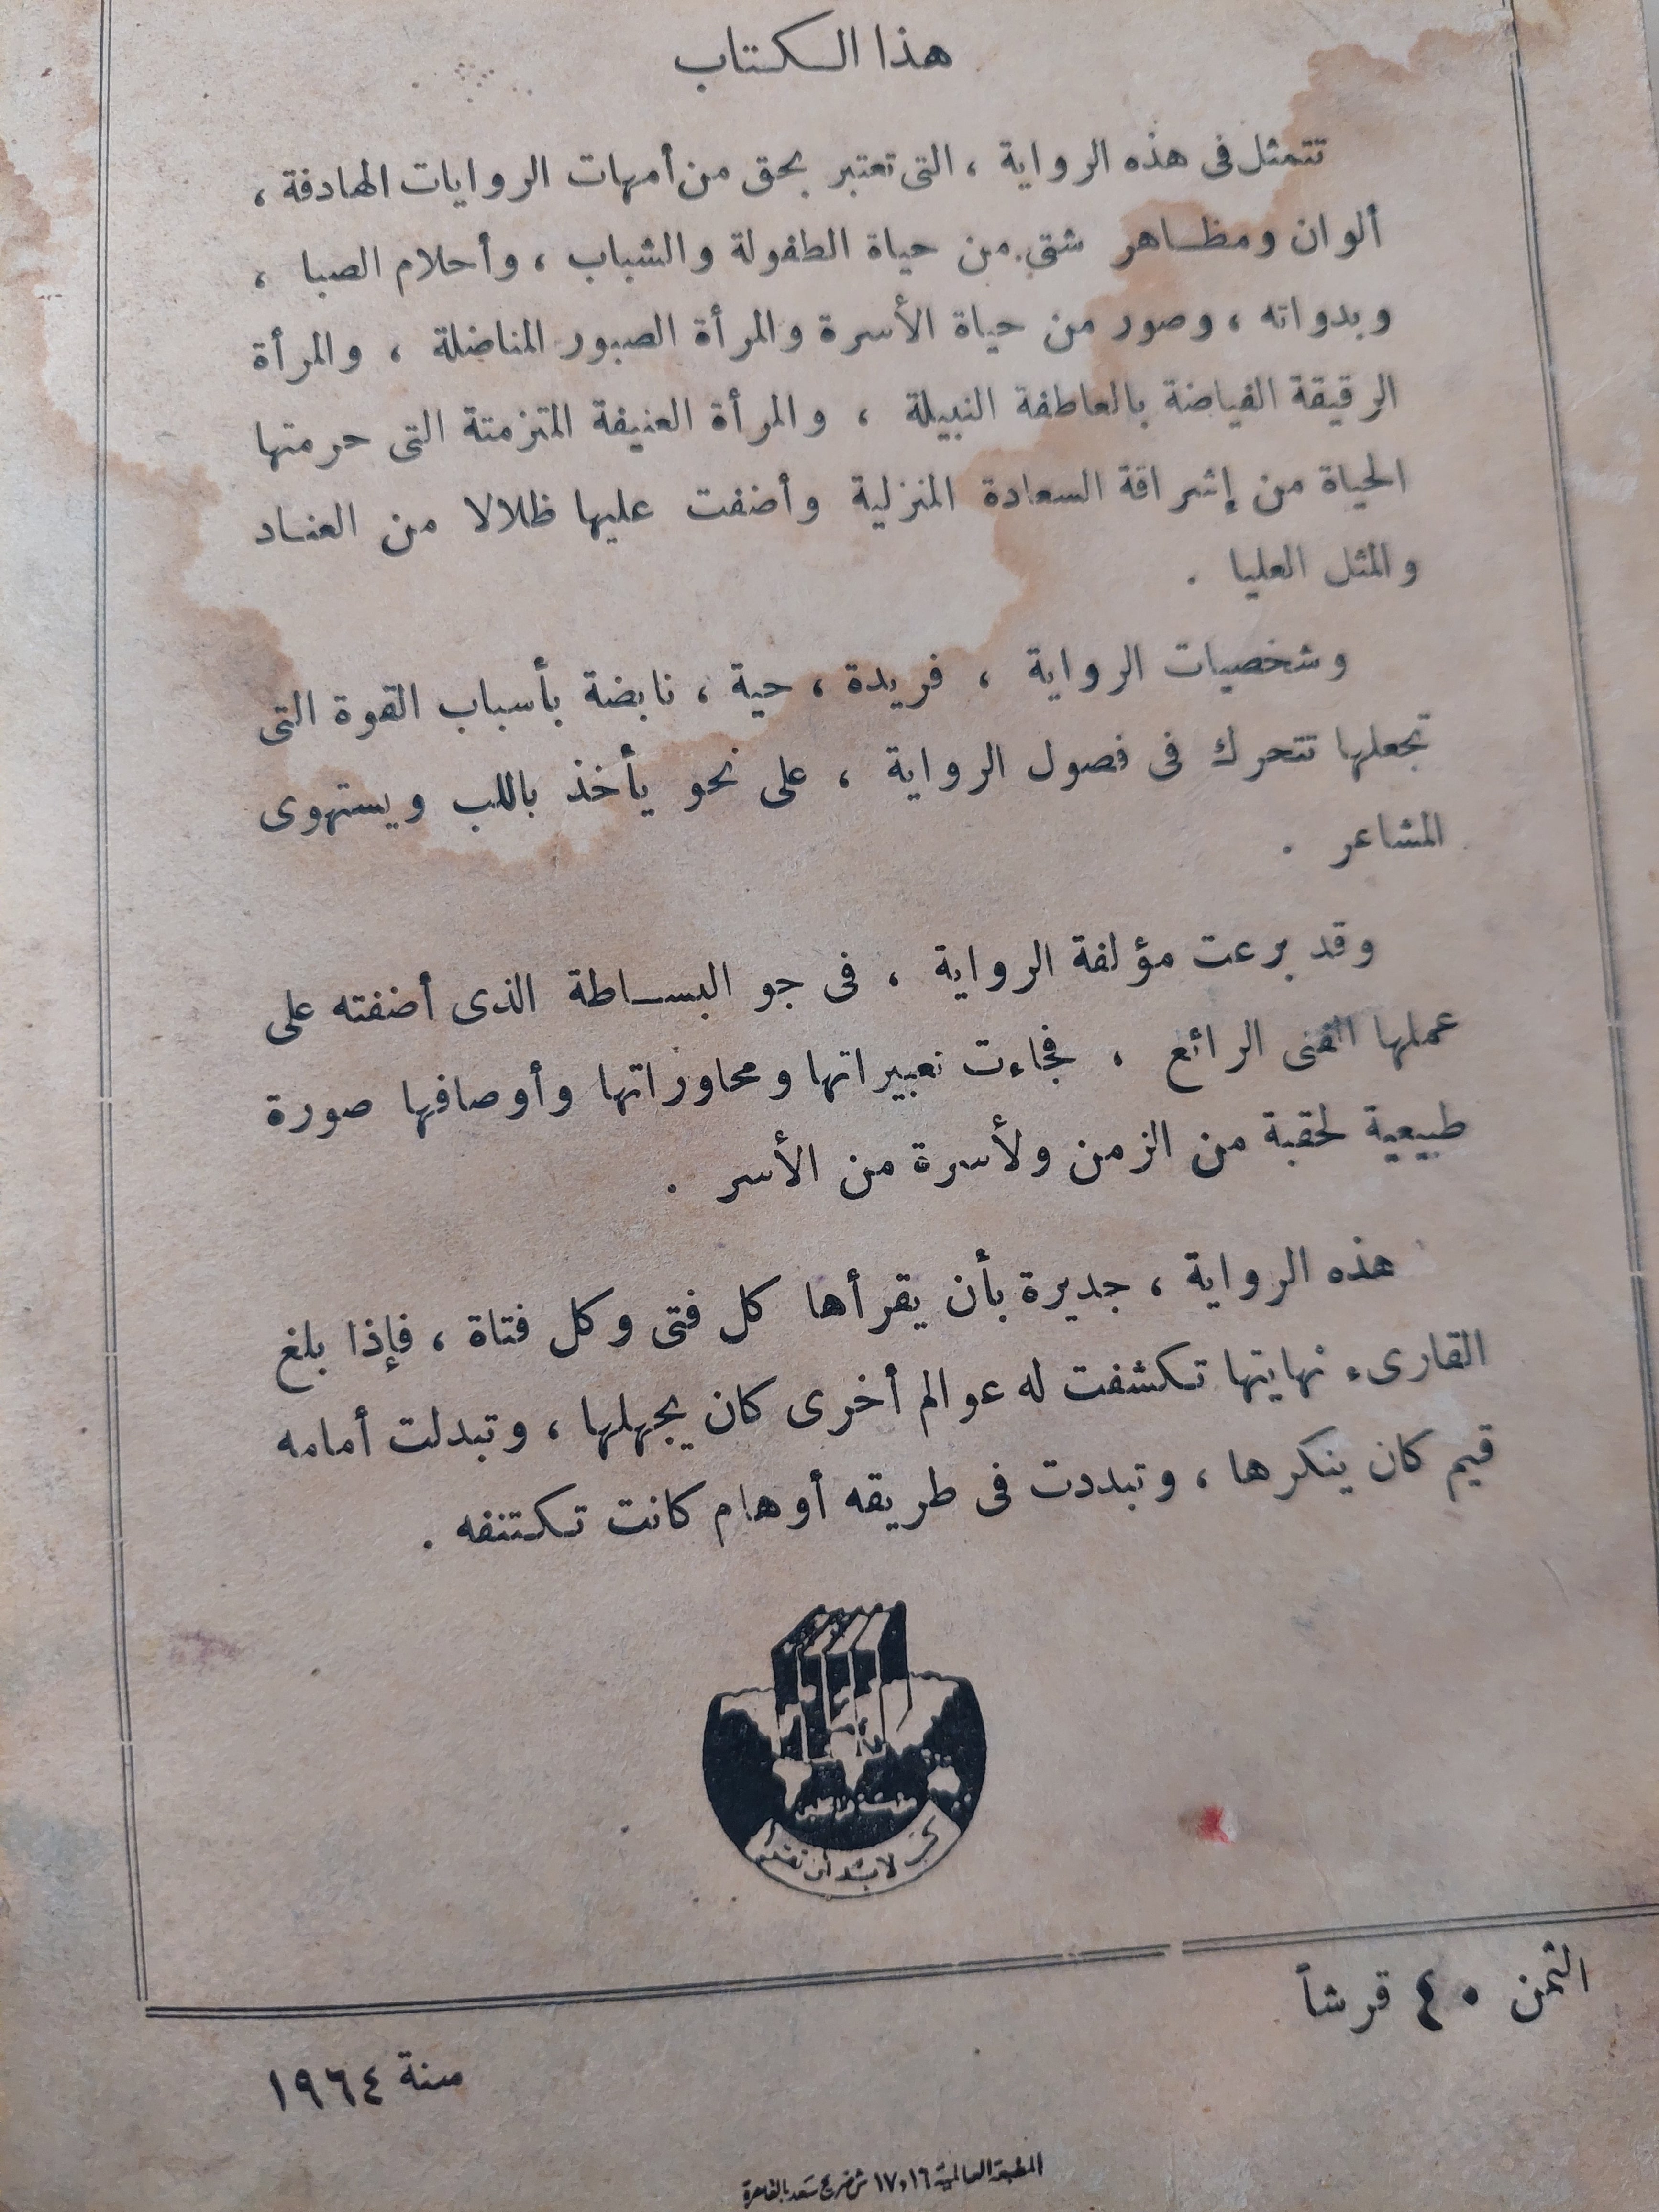 هذا الكتاب
تتمثل فى هذه الرواية ، التى تعتبر بحق من أمهات الروايات الهادفة ،
ألوان ومظاهر شتى من حياة الطفولة والشباب ، وأحلام الصبا ،
وبدواته ، وصور من حياة الأسرة والمرأة الصبور المناضلة ، والمرأة
الرقيقة الفياضة بالعاطفة النبيلة ، والمرأة العنيفة المتزمتة التى حرمتها
الحياة من إشراقة السعادة المنزلية وأضفت عليها ظلالا من العناد
والمثل العليا .
وشخصيات الرواية ، فريدة ، حية ، نابضة بأسباب القوة التى
تجعلها تتحرك فى فصول الرواية ، على نحو يأخذ باللب ويستهوى
المشاعر .
وقد برعت مؤلفة الرواية ، فى جو البساطة الذى أضفته على
عملها الفنى الرائع ، فجاءت تعبيراتها ومحاوراتها وأوصافها صورة
طبيعية لحقبة من الزمن ولأسرة من الأسر .
هذه الرواية ، جديرة بأن يقرأها كل فتى وكل فتاة ، فإذا بلغ
القارىء نهايتها تكشفت له عوالم أخرى كان يجهلها ، وتبدلت أمامه
قيم كان ينكرها ، وتبددت فى طريقه أوهام كانت تكتنفه .
لابد أن نقدم
الثمن ٤٠ قرشاً
سنة ١٩٦٤
المطبعة العالمية ١٦ و ١٧ ش ضريح سعد بالقاهرة